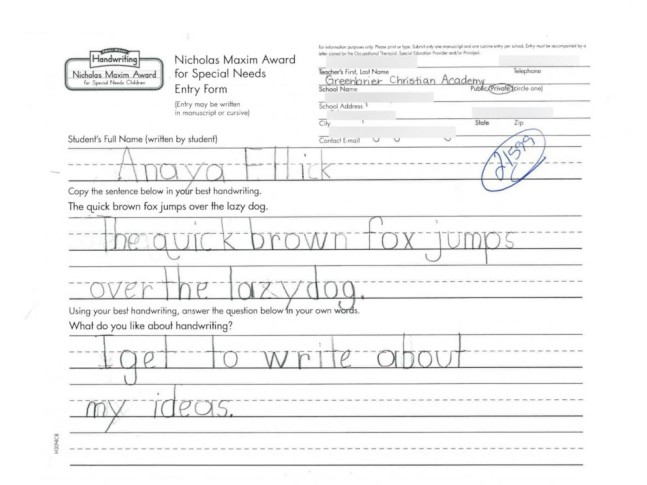 For information purposes only. Please print or type. Submit only one manuscript and one cursive entry per school. Entry must be accompanied by a
letter signed by the Occupational Therapist, Special Education Provider and/or Principal.
Handwriting
Nicholas Maxim Award
for Special Needs Children
Nicholas Maxim Award
for Special Needs
Entry Form
(Entry may be written
in manuscript or cursive)
Teacher's First, Last Name Telephone
Greenbrier Christian Academy
School Name Public/Private (circle one)
School Address
City State Zip
Contact E-mail
21599
Student's Full Name (written by student)
Anaya Ellick
Copy the sentence below in your best handwriting.
The quick brown fox jumps over the lazy dog.
The quick brown fox jumps
over the lazy dog.
Using your best handwriting, answer the question below in your own words.
What do you like about handwriting?
I get to write about
my ideas.